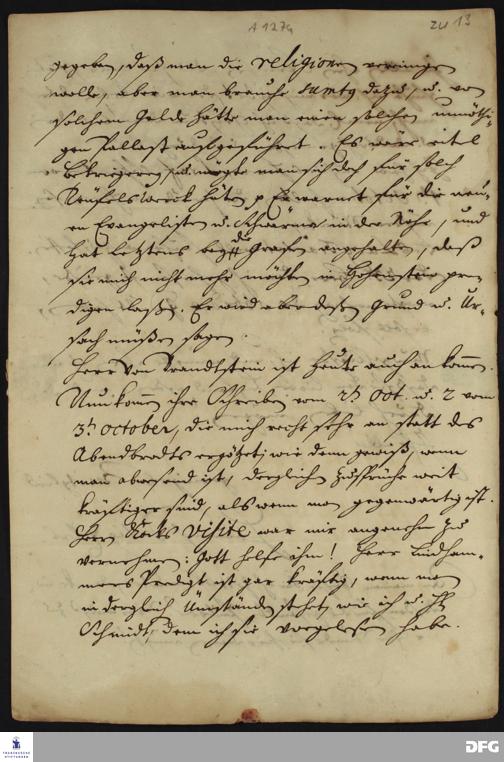 A 127a
zu 13
gegeben, daß man die religionen vereinigen
wolle, aber man brauche sumtg dazu, u. von
solchem Gelde hätte man einen solchen unnöthi-
gen Pallast aufgeführet. Es wäre eitel
betriegerey, u. mögte man sich doch für solch
Teüfelswerck hüten p Er warnet für die neu-
en Evangelisten u. Schwärmer in der Nähe, und
hat letztens bey der Gräfin angehalten, daß
sie mich nicht mehr möchten in Hohenstein pre-
digen laßen. Er wird aber deßen Grund u. Ur-
sach müßen sagen.
Herr von Brandtstein ist heute auch an kommen.
Nun kommen ihre Schreiben vom 2t Oct. u. 2 vom
3t. october, die mich recht sehr an statt des
Abendbrodts ergötzet; wie denn gewiß, wenn
man abwesend ist, dergleichen Zusprüche weit
kräftiger sind, als wenn man gegenwärtig ist.
Herrn Visite war mir angenehm zu
vernehmen: Gott helfe ihm! Herr Lindham-
mers Predigt ist gar kräftig, wenn man
in dergleich Umständen stehet, wie ich u. H.
Schmidt, dem ich sie vorgelesen habe.
FRANCKESCHE
STIFTUNGEN
DFG